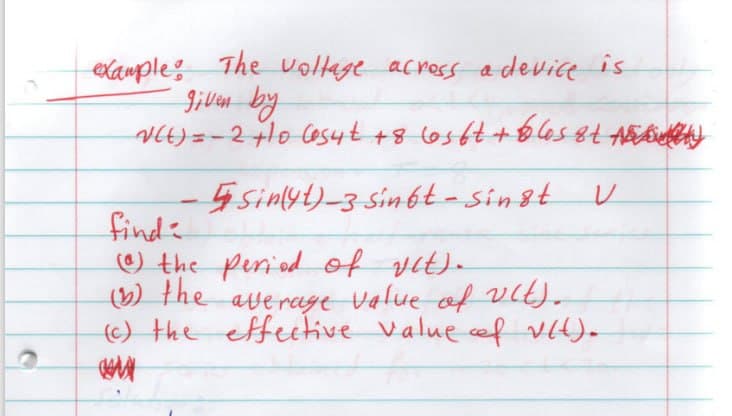 example: The voltage across a device is
given by
v(t) = -2 + 10 cos4t + 8 cos6t + 6 cos 8t
- 5 sin(4t) - 3 sin6t - sin 8t V
find:
(a) the period of v(t).
(b) the average value of v(t).
(c) the effective value of v(t).